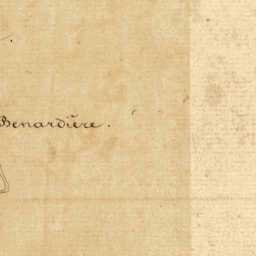 Benardière.